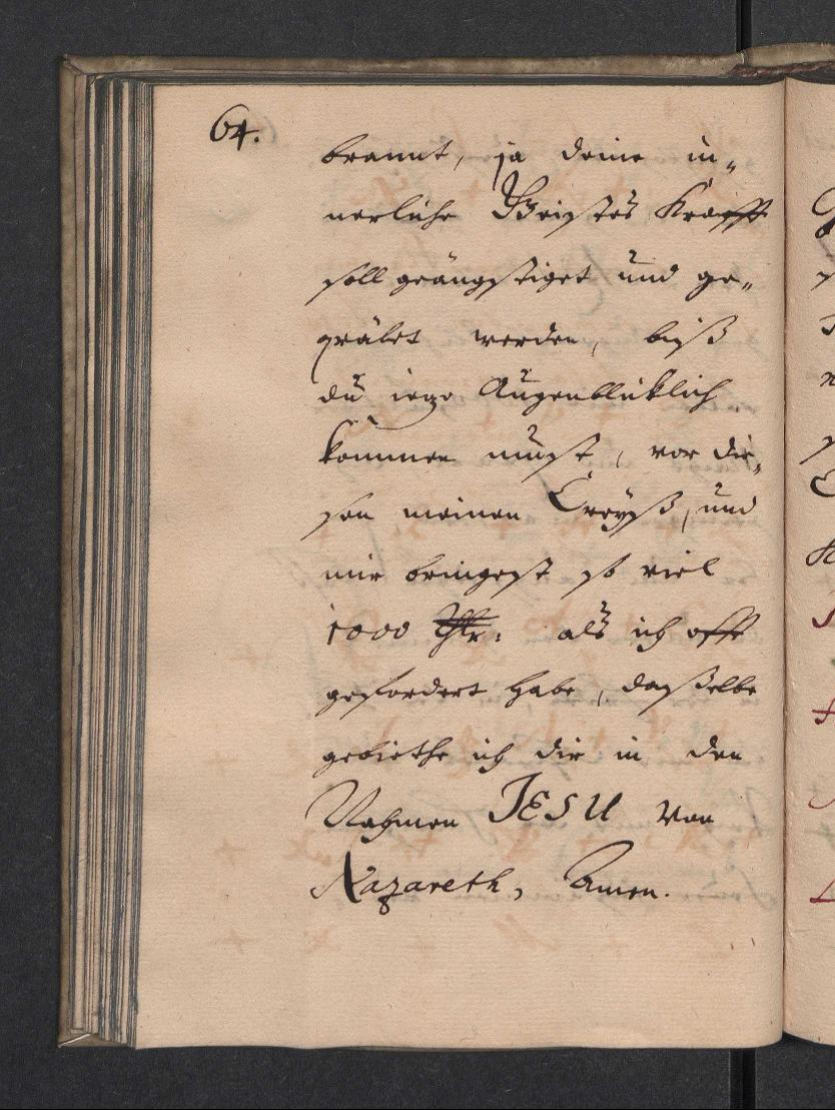 64.
brannt, ja deine in„
nerliche Geistes Krafft
soll geängstiget und ge„
qvälet werden, biß
du ietzo Augenblicklich
kommen must, vor die„
sen meinen Creyß, und
mir bringest so viel
1000 Thlr: als ich offt
gefordert habe, daßelbe
gebiethe ich dir in den
Nahmen JESU von
Nazareth, Amen.